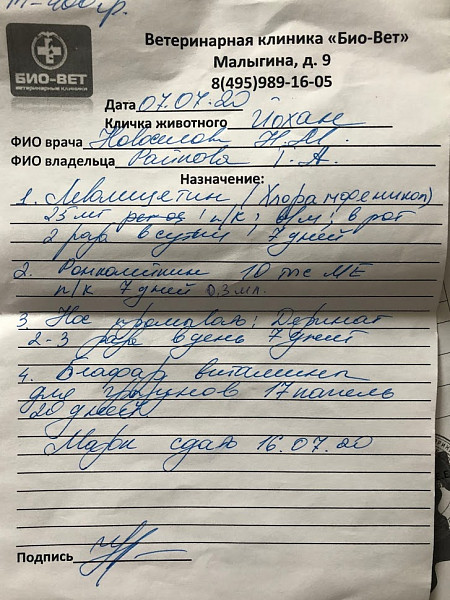 m-400гр.
БИО-ВЕТ
ветеринарные клиники
Ветеринарная клиника «Био-Вет»
Малыгина, д. 9
8(495)989-16-05
Дата 07.07.20
Кличка животного Йохан
ФИО врача Новоселов Н.М.
ФИО владельца Т.А.
Назначение:
1. Левомицетин (Хлорамфеникол)
25мг п/к; в/м; в рот
2 раза в сутки 7 дней
2. Ронколейкин 10 тыс МЕ
п/к 7 дней 0.3 мл.
3. Нос промываю; Деринат
2-3 раза в день 7 дней
4. витамины
для грызунов 17 капель
20 дней
сдаю 16.07.20
Подпись